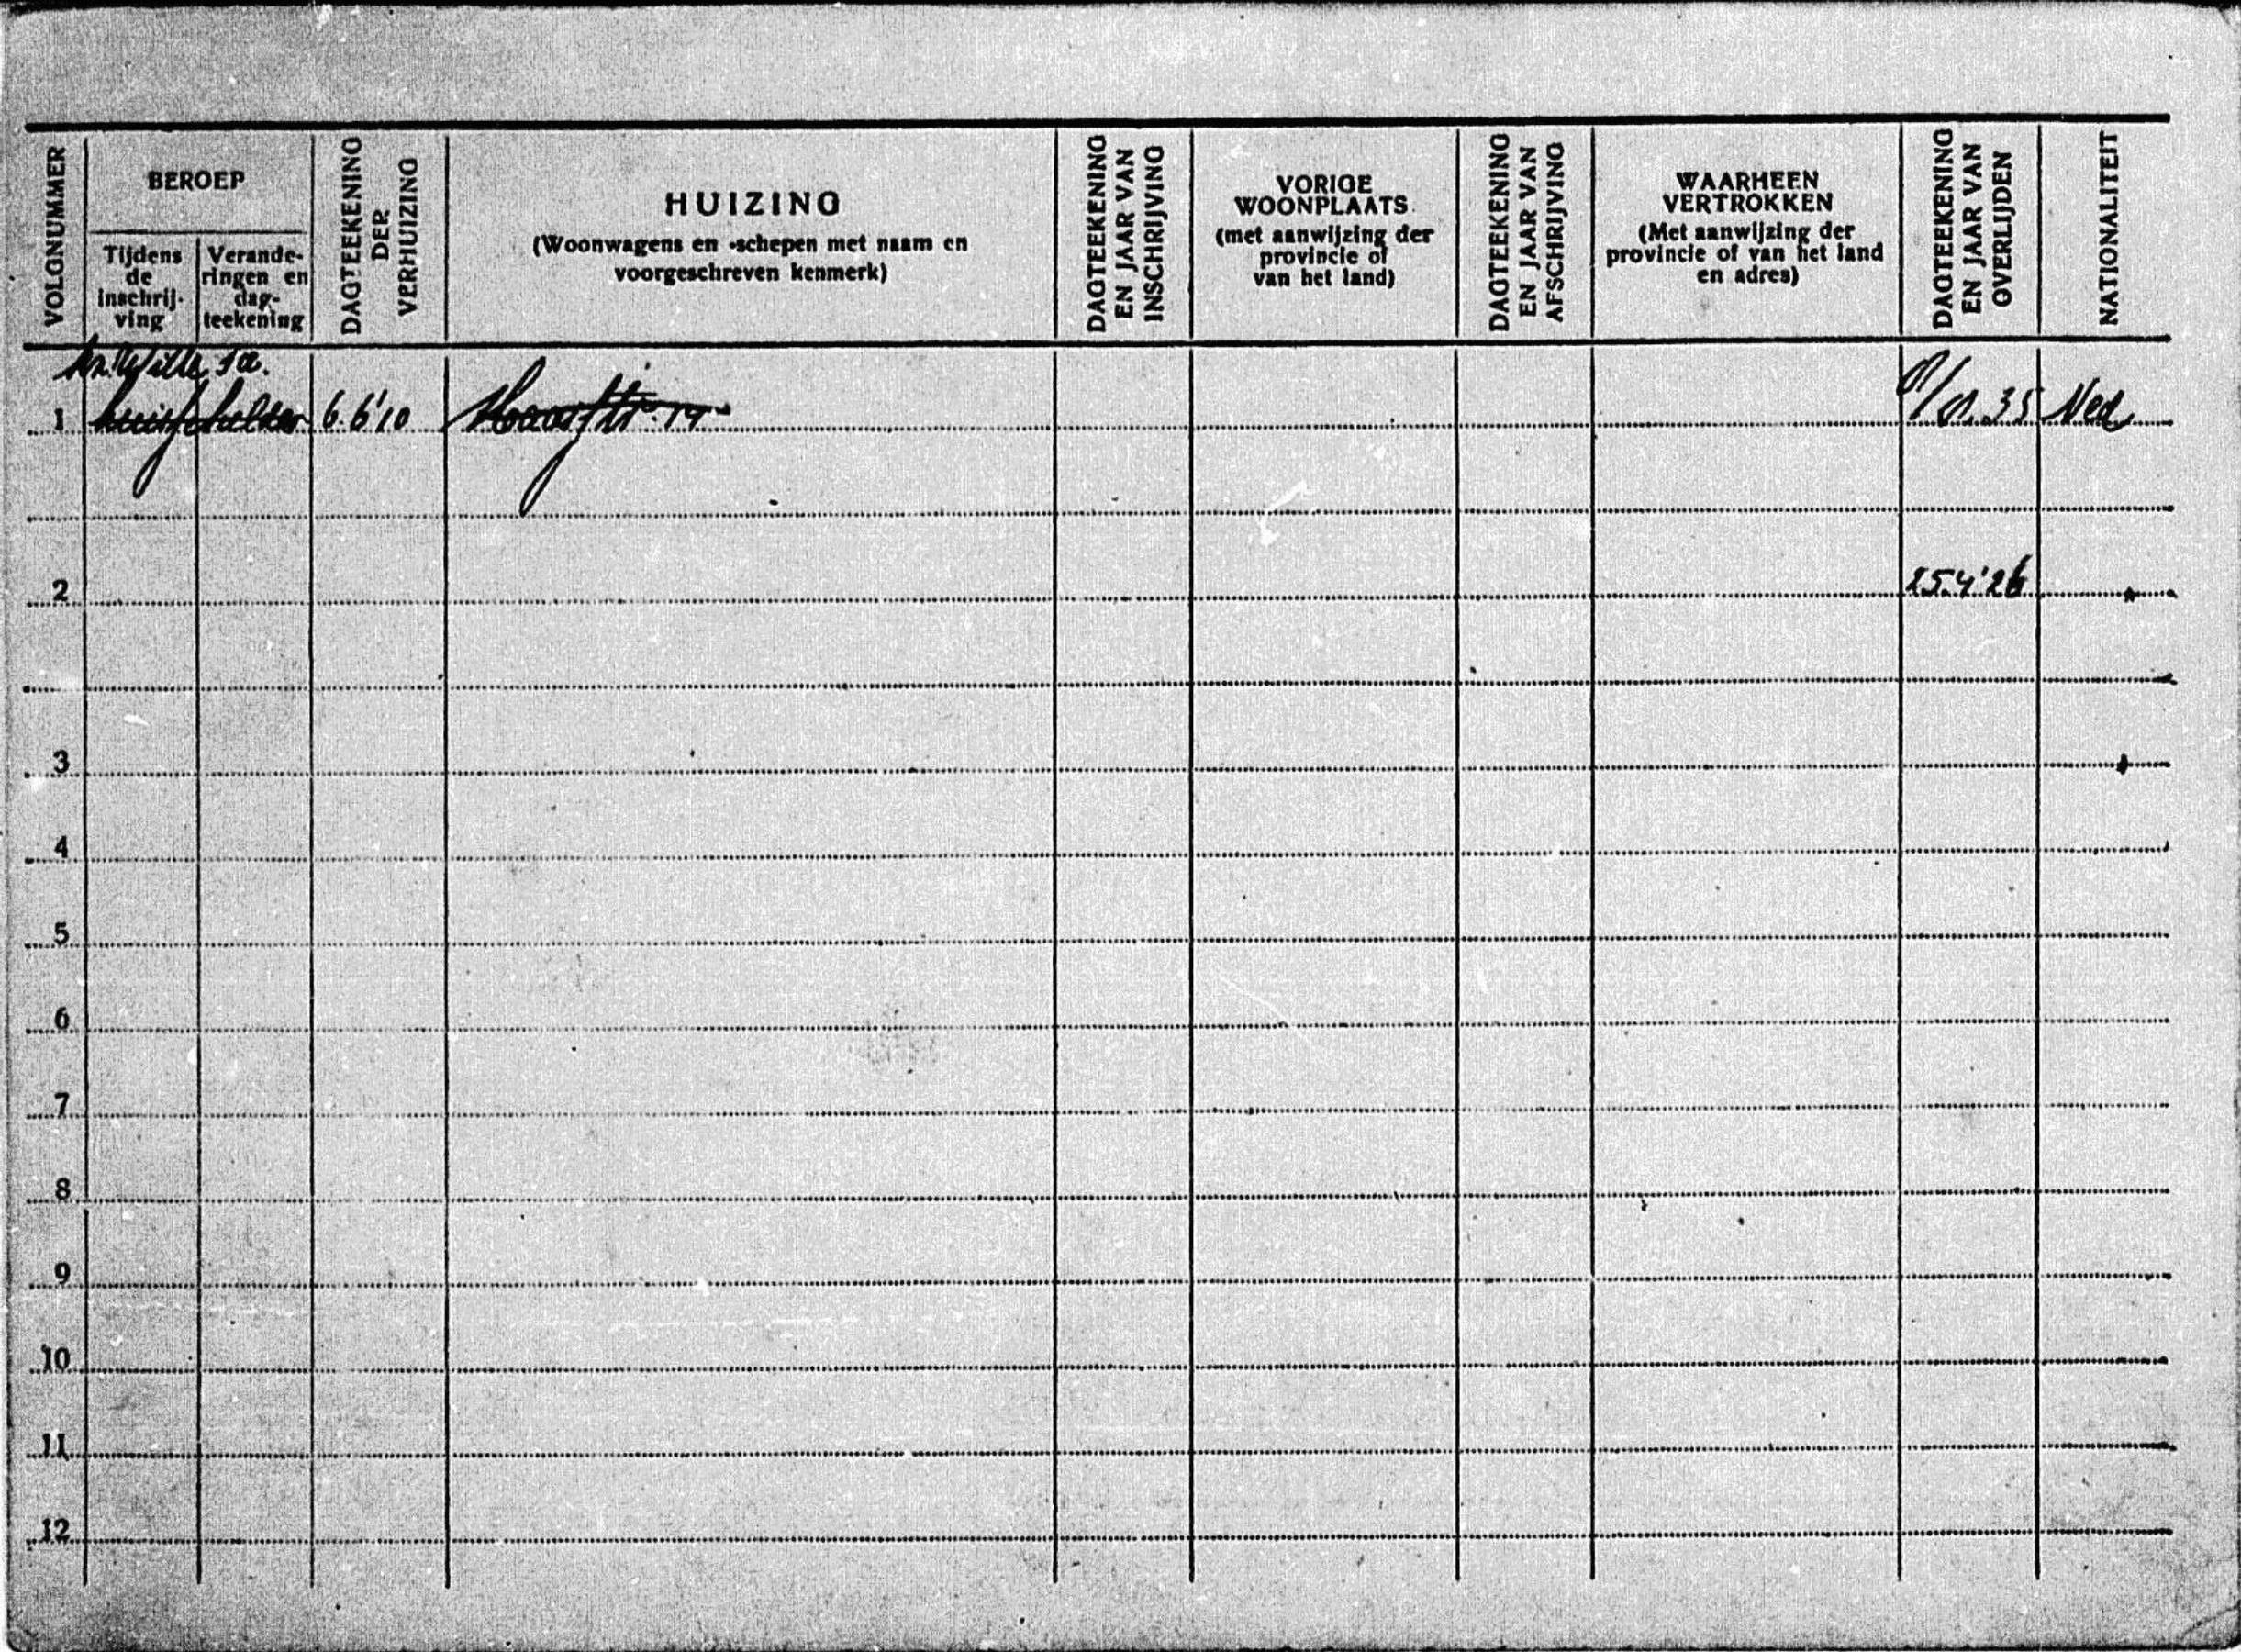 VOLGNUMMER
BEROEP
Tijdens de inschrij- ving
Verande- ringen en dag- teekening
DAGTEEKENING DER VERHUIZING
HUIZING
(Woonwagens en -schepen met naam en
voorgeschreven kenmerk)
DAGTEEKENING EN JAAR VAN INSCHRIJVING
VORIGE
WOONPLAATS
(met aanwijzing der
provincie of
van het land)
DAGTEEKENING EN JAAR VAN AFSCHRIJVING
WAARHEEN
VERTROKKEN
(Met aanwijzing der
provincie of van het land
en adres)
DAGTEEKENING EN JAAR VAN OVERLIJDEN
NATIONALITEIT
1 huisschilder 6.6'10 35 Ned
2 25.4'26
3
4
5
6
7
8
9
10
11
12